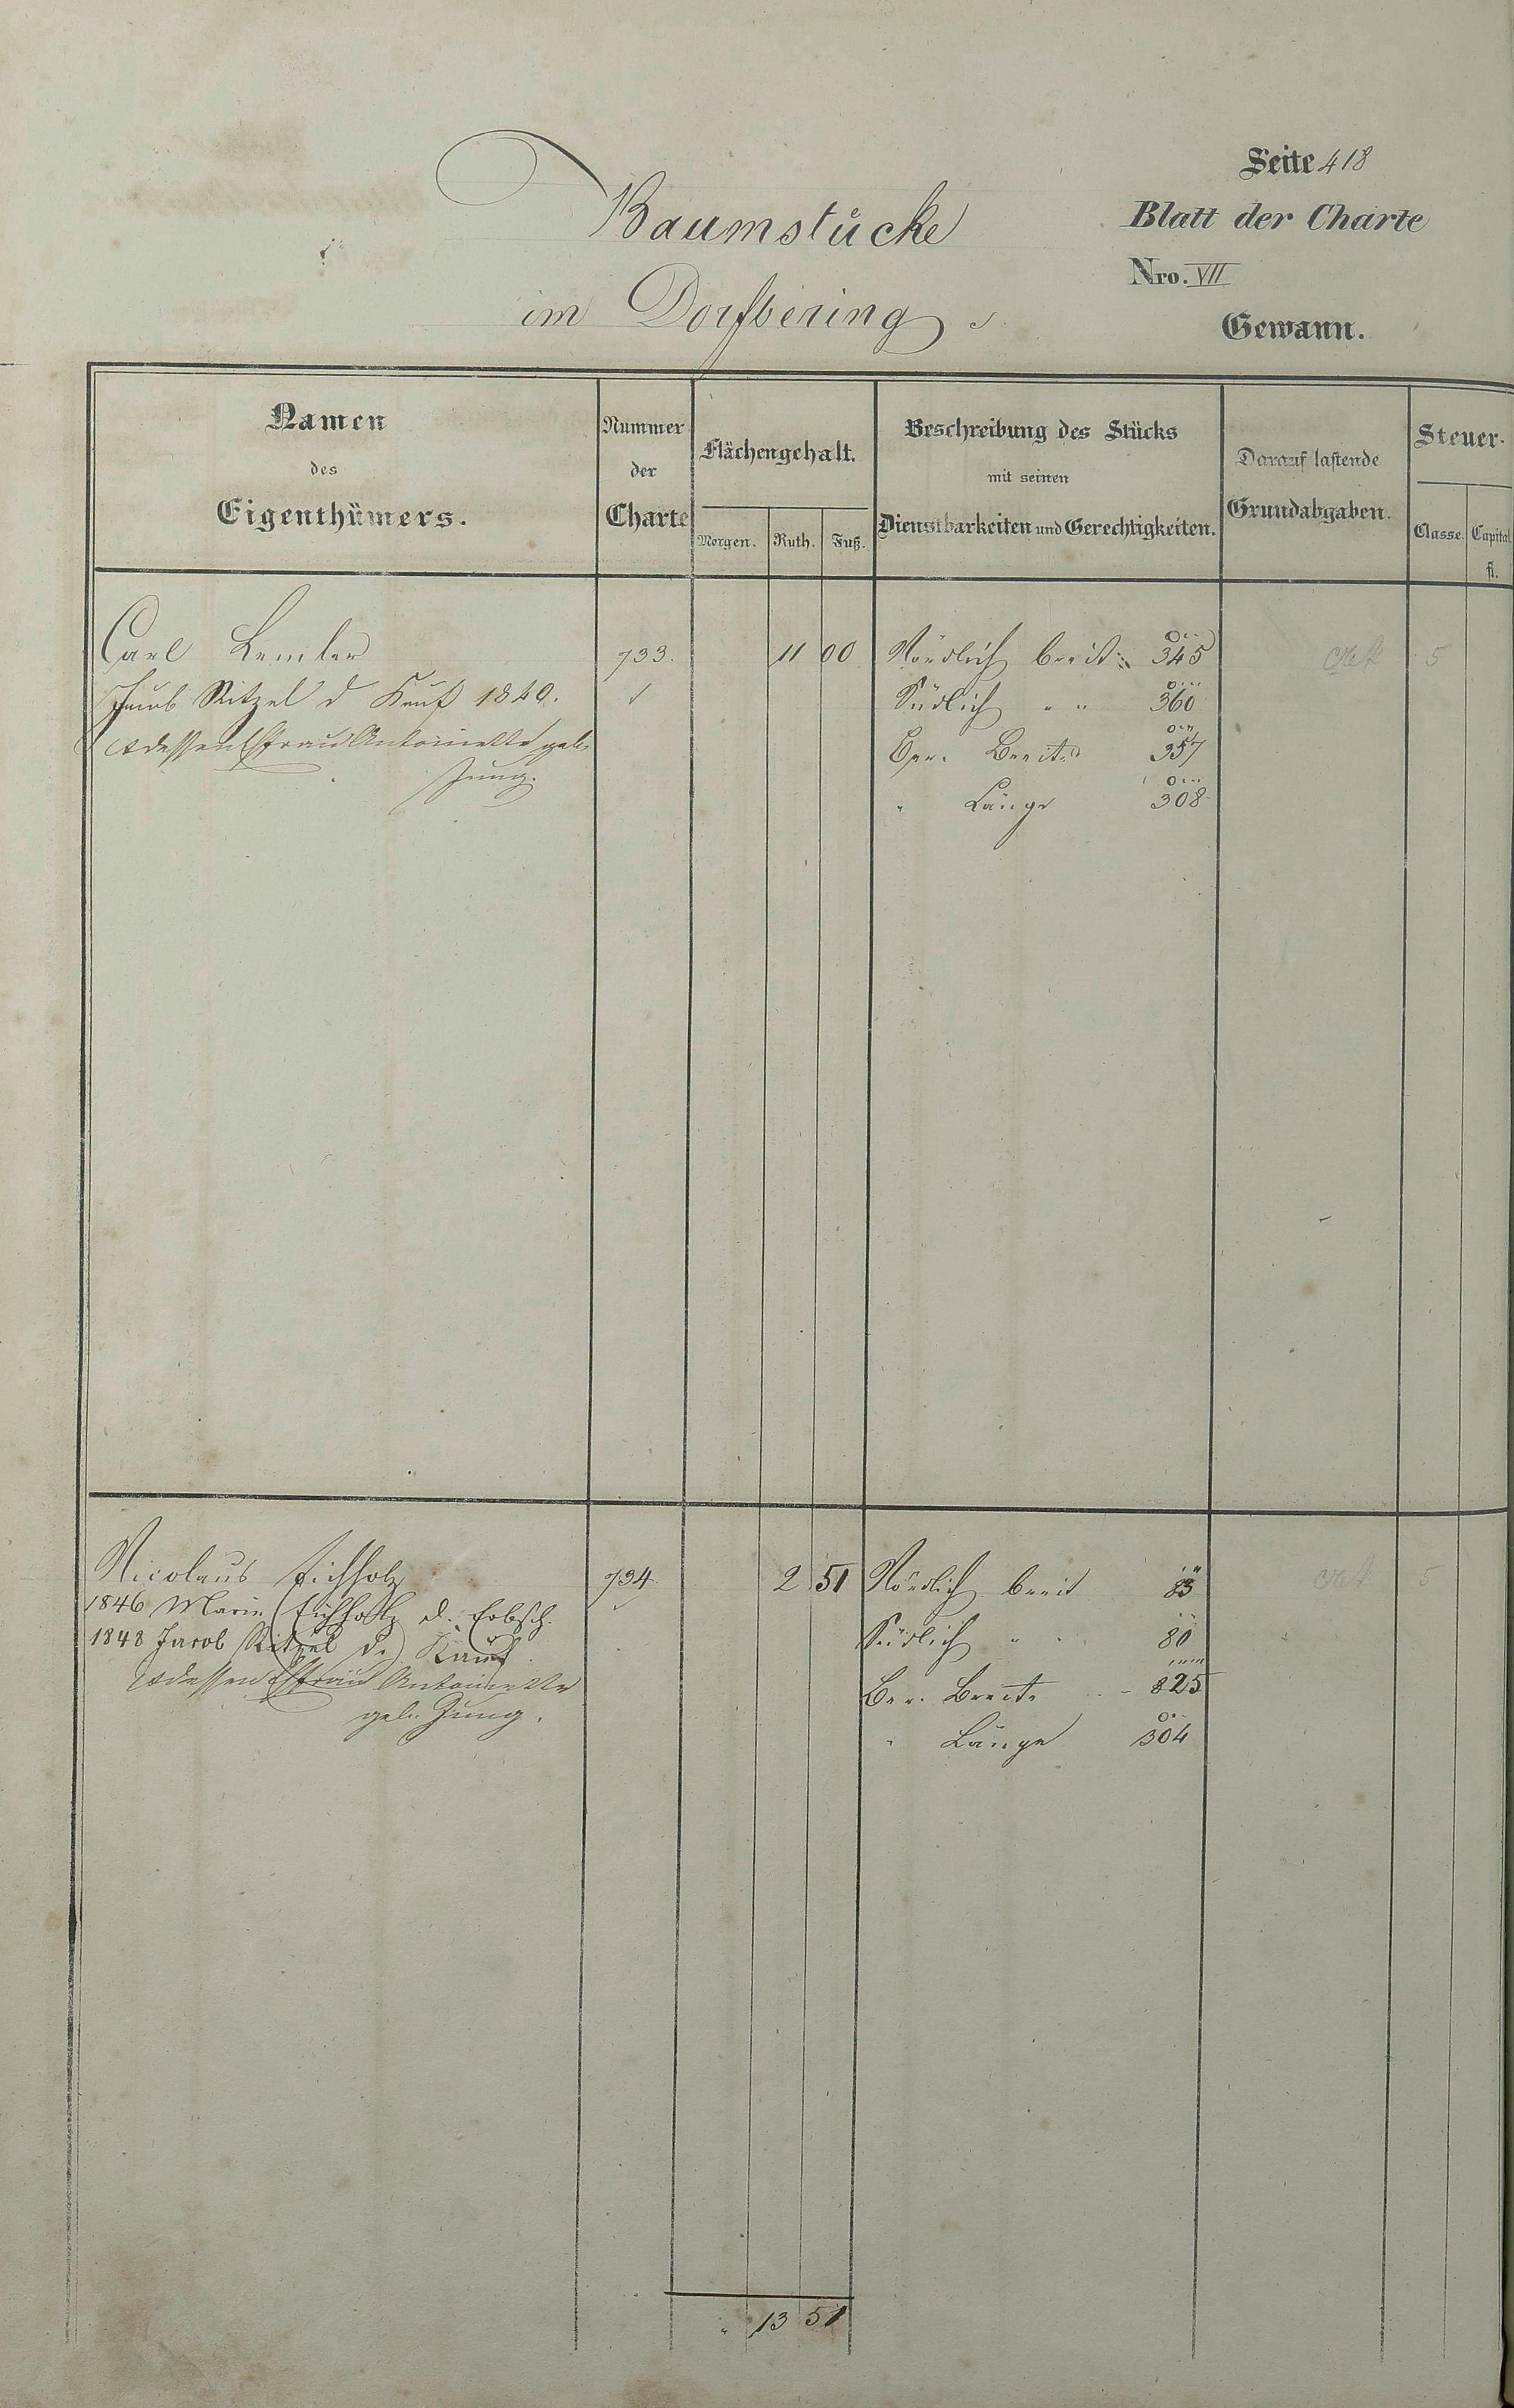 Seite 418
Baumstücke
Blatt der Charte
Nro. VII
im Dorfbering
Gewann.
Namen
des
Eigenthümers.
Nummer
der
Charte
Flächengehalt.
Morgen. Ruth. Fuß.
Beschreibung des Stücks
mit seinen
Dienstbarkeiten und Gerechtigkeiten.
Darauf lastende
Grundabgaben.
Steuer-
Classe. Capital
fl.
Carl Lemler 733. 11 00 Nördlich breit 345 5
Jacob Ritzel d Kauf 1840. Südlich " " 360
& dessen Ehfrau Antoinette geb. Ger. Breite 357
Jung. " Länge 308
Nicolaus Eichholz 734. 2 51 Nördlich breit 83 5
1846 Marie Eichholz d. Erbsch.
1848 Jacob Ritzel d. Kauf. Südlich " " 80
& dessen Ehfrau Antoinette Ger. Breite 825
geb. Jung. " Länge 304
" 13 51